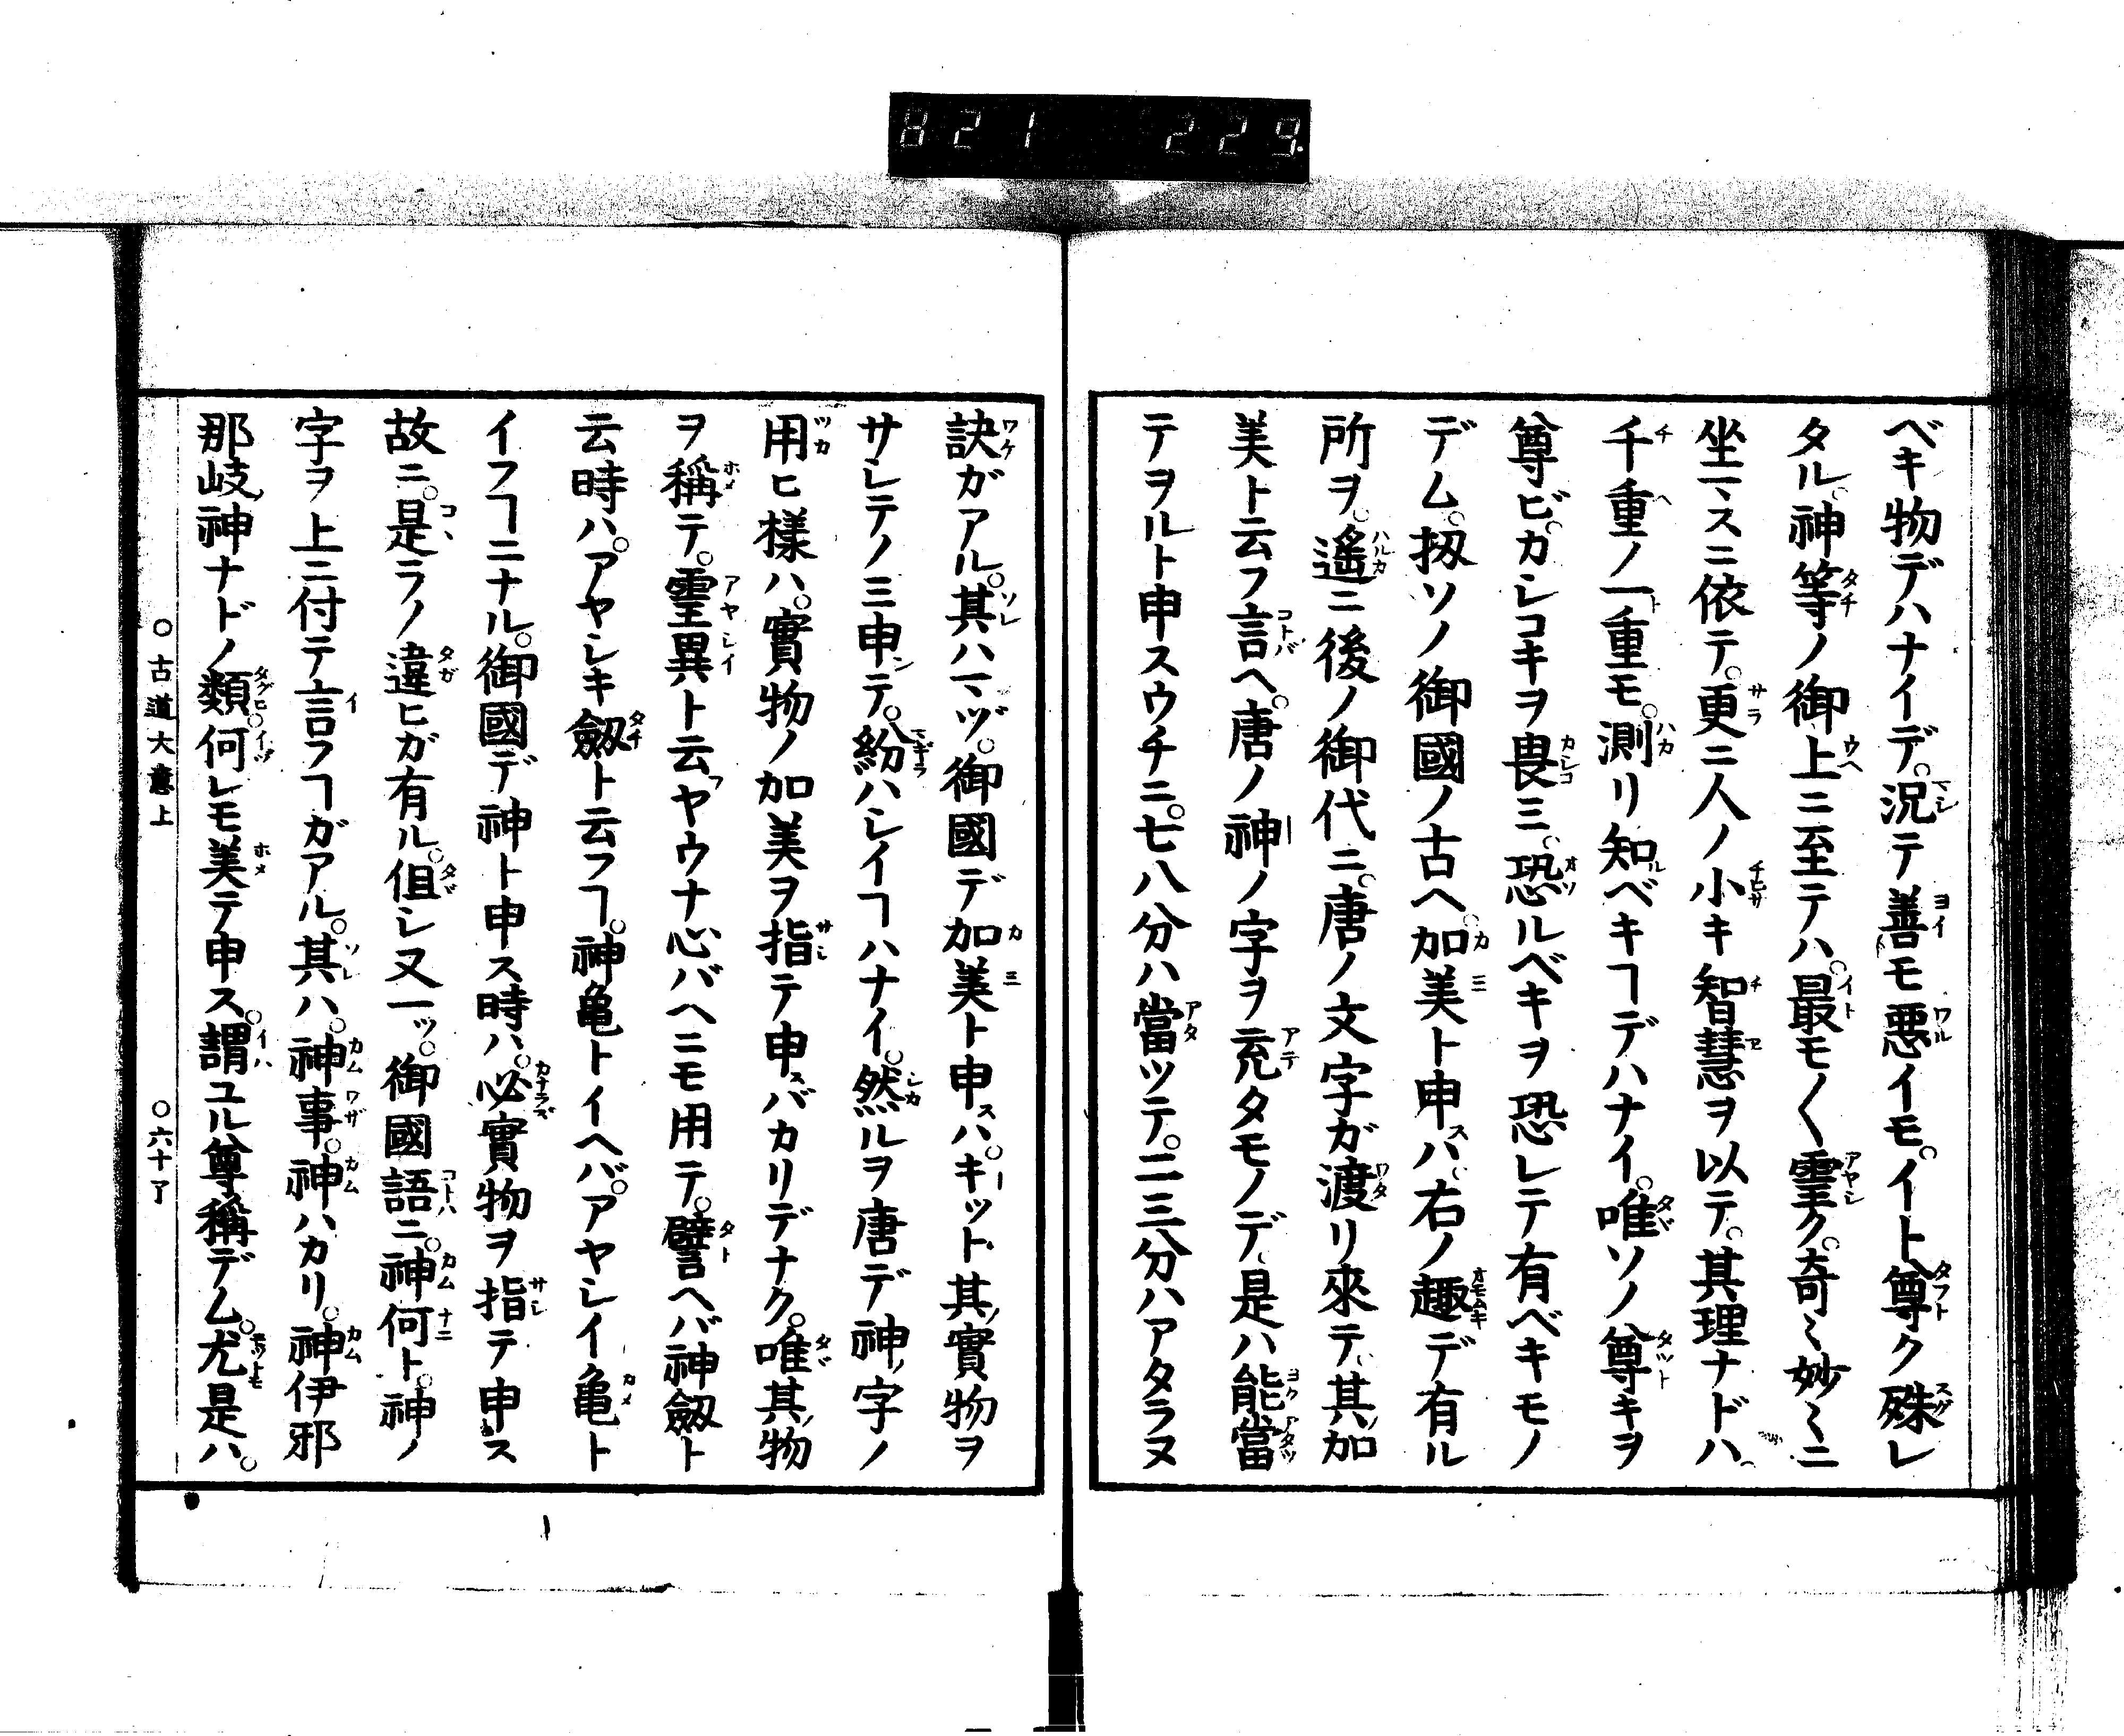 821 229
ベキ物デハナイデ。況テ善モ悪イモ。イト尊ク殊レ
タル。神等ノ御上ニ至テハ。最モ〱霊ク。奇ミ妙ミニ
坐マスニ依テ。更ニ人ノ小キ智慧ヲ以テ。其理ナドハ。
千重ノ一重モ。測リ知ベキヿデハナイ。唯ソノ尊キヲ
尊ビ。カシコキヲ畏ミ。恐ルベキヲ恐レテ有ベキモノ
デム。扨ソノ御國ノ古ヘ。加美ト申スハ。右ノ趣デ有ル
所ヲ。遙ニ後ノ御代ニ。唐ノ文字ガ渡リ來テ。其ノ加
美ト云フ言ヘ。唐ノ神ノ字ヲ充タモノデ。是ハ能當
テヲルト申スウチニ。七八分ハ當ツテ。二三分ハアタラヌ
訣ガアル。其ハマヅ。御國デ加美ト申スハ。キット其ノ實物ヲ
サシテノミ申ンテ。紛ハシイヿハナイ。然ルヲ唐デ神ノ字ノ
用ヒ様ハ。實物ノ加美ヲ指テ申スバカリデナク。唯其ノ物
ヲ稱テ。霊異ト云フヤウナ心バヘニモ用テ。譬ヘバ神劔ト
云時ハ。アヤシキ劔ト云フヿ。神亀トイヘバ。アヤシイ亀ト
イフヿニナル。御國デ神ト申ス時ハ。必實物ヲ指テ申ス
故ニ。是ラノ違ヒガ有ル。但シ又一ッ。御國語ニ。神何ト。神ノ
字ヲ上ニ付テ言フヿガアル。其ハ。神事。神ハカリ。神伊邪
那岐ノ神ナドノ類。何レモ美テ申ス。謂ユル尊稱デム。尤是ハ。
○古道大意上 ○六十丁